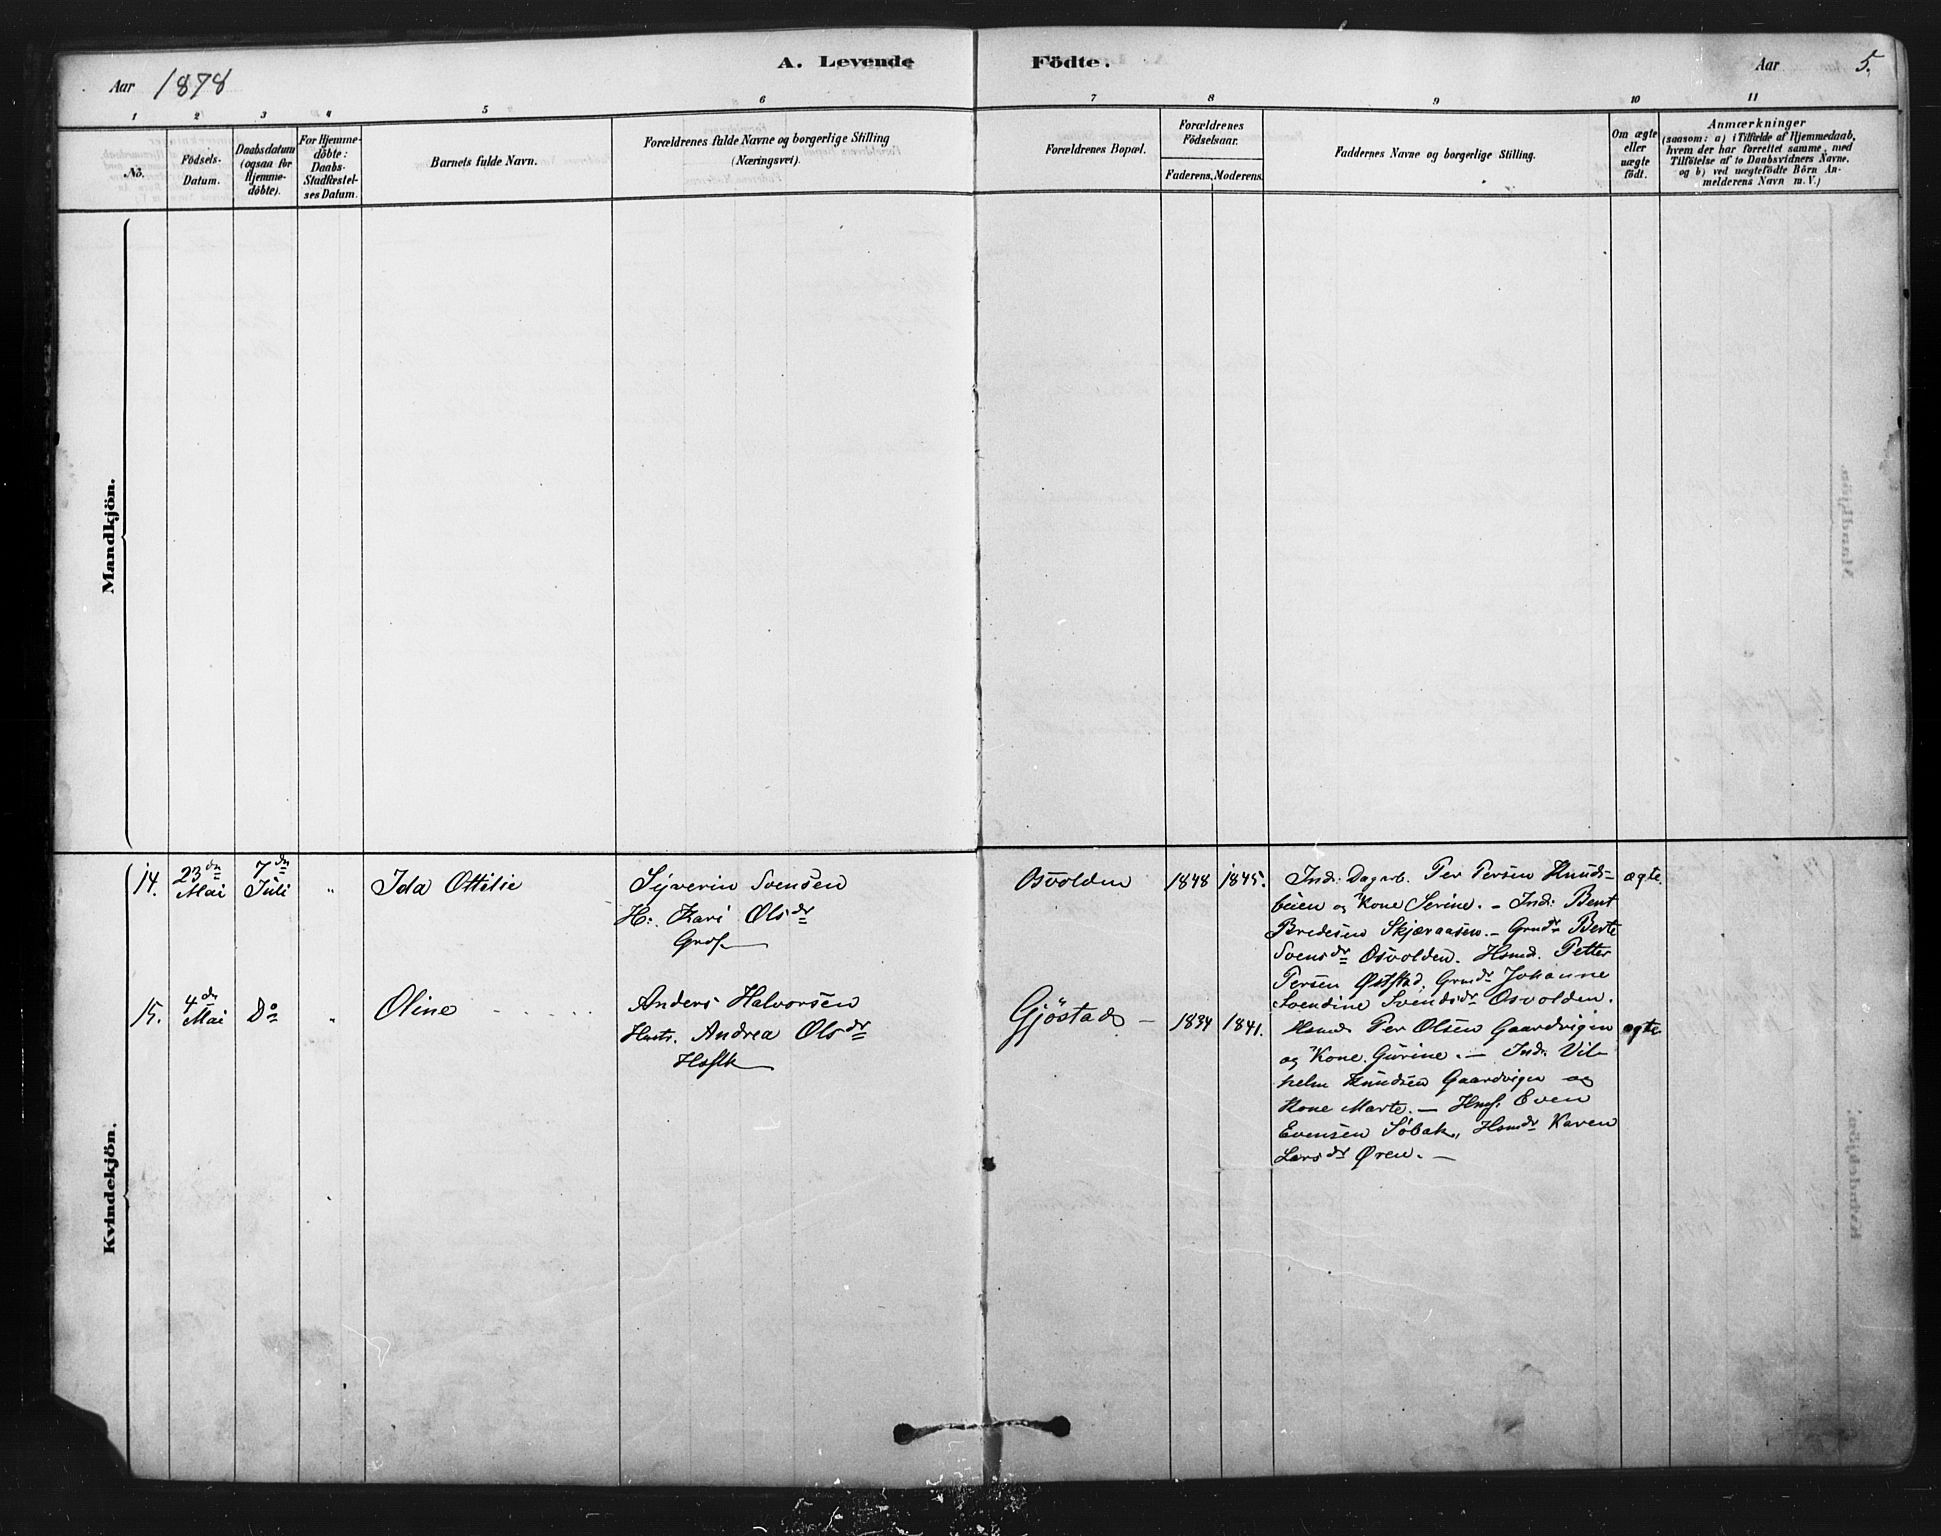 A. Levende Födte.
Aar 1878
Aar 5.
1 2 3 4 5 6 7 8 9 10 11
Nö.
Födsels-Datum.
Daabsdatum (ogsaa for Hjemme-döbte).
For Hjemme-döbte: Daabs-Stadfæstel-ses Datum.
Barnets fulde Navn.
Forældrenes fulde Navne og borgerlige Stilling (Næringsvei).
Forældrenes Bopæl.
Forældrenes Födselsaar.
Faderens. Moderens.
Faddernes Navne og borgerlige Stilling.
Om ægte eller uægte födt.
Anmærkninger
(saasom: a) i Tilfælde af Hjemmedaab,
hvem der har forrettet samme, med
Tilföielse af to Daabsvidners Navne.
og b) ved uægtefödte Börn An-
melderens Navn m. V.)
Mandkjön.
Kvindekjön.
14. 23de Mai 7de Juli " Ida Ottilie
Syverin Svensen
H: Kari Olsdr
Osvolden 1848 1845.
Ind: Dagarb. Per Persen Knuds-
beien og Kone Serine. – Ind: Bent
Bredesen Skjæraasen. – Grudr Berte
Svensdr Osvolden. Hsmd. Petter
Persen Øststad. Grudr Johanne
Svendine Svendsdr Osvolden.
ægte.
15. 4de Mai Do " Oline
Anders Halvorsen
Hust. Andrea Olsdr
Gjöstad – 1834 1841.
Hsmd Per Olsen Gaardvigen
og Kone Gurine. – Ind. Vil-
helm Knudsen Gaardvigen og
Kone Marte. – Even
Evensen Söbak, Hsmdr Karen
Larsdr Øren. –
ægte.